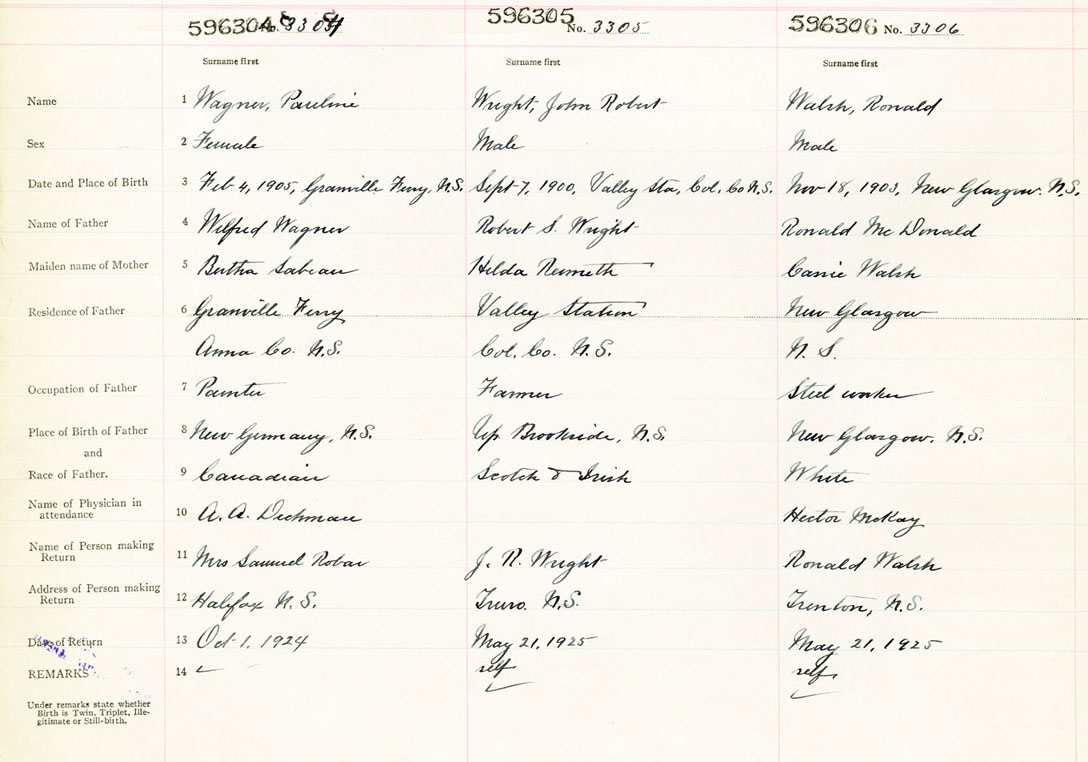 596304 No. 3304 596305 No. 3305 596306 No. 3306
Surname first Surname first Surname first
Name 1 Wagner, Pauline Wright, John Robert Walsh, Ronald
Sex 2 Female Male Male
Date and Place of Birth 3 Feb 4, 1905, Granville Ferry, N.S. Sept 7, 1900, Valley Sta, Col. Co N.S. Nov 18, 1903, New Glasgow. N.S.
Name of Father 4 Wilfred Wagner Robert S. Wright Ronald Mc Donald
Maiden name of Mother 5 Bertha Sabeau Hilda Walsh
Residence of Father 6 Granville Ferry Valley Station New Glasgow
Anna Co. N.S. Col. Co. N.S. N. S.
Occupation of Father 7 Painter Farmer Steel worker
Place of Birth of Father 8 New Germany, N.S. Up Brookside, N.S. New Glasgow. N.S.
and
Race of Father. 9 Canadian Scotch & Irish White
Name of Physician in
attendance 10 A. A. Dechman Hector McKay
Name of Person making
Return 11 Mrs Samuel Robar J. R. Wright Ronald Walsh
Address of Person making
Return 12 Halifax N.S. Truro. N.S. Trenton, N.S.
Date of Return 13 Oct 1, 1924 May 21, 1925 May 21, 1925
REMARKS 14 self self
Under remarks state whether
Birth is Twin, Triplet, Ille-
gitimate or Still-birth.